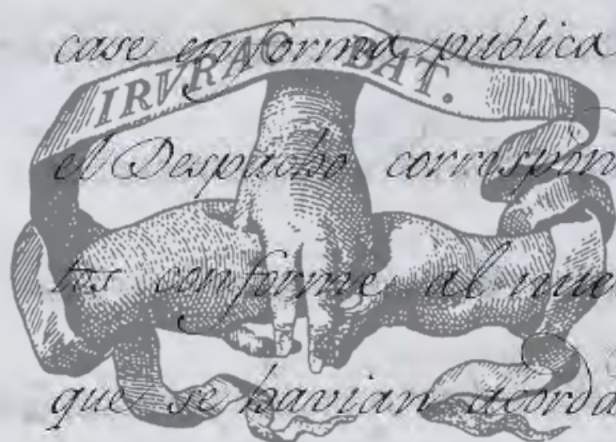 case en forma publica
IRVRAC BAT.
el Despacho correspon
tos conforme al mu
que se havian acorda